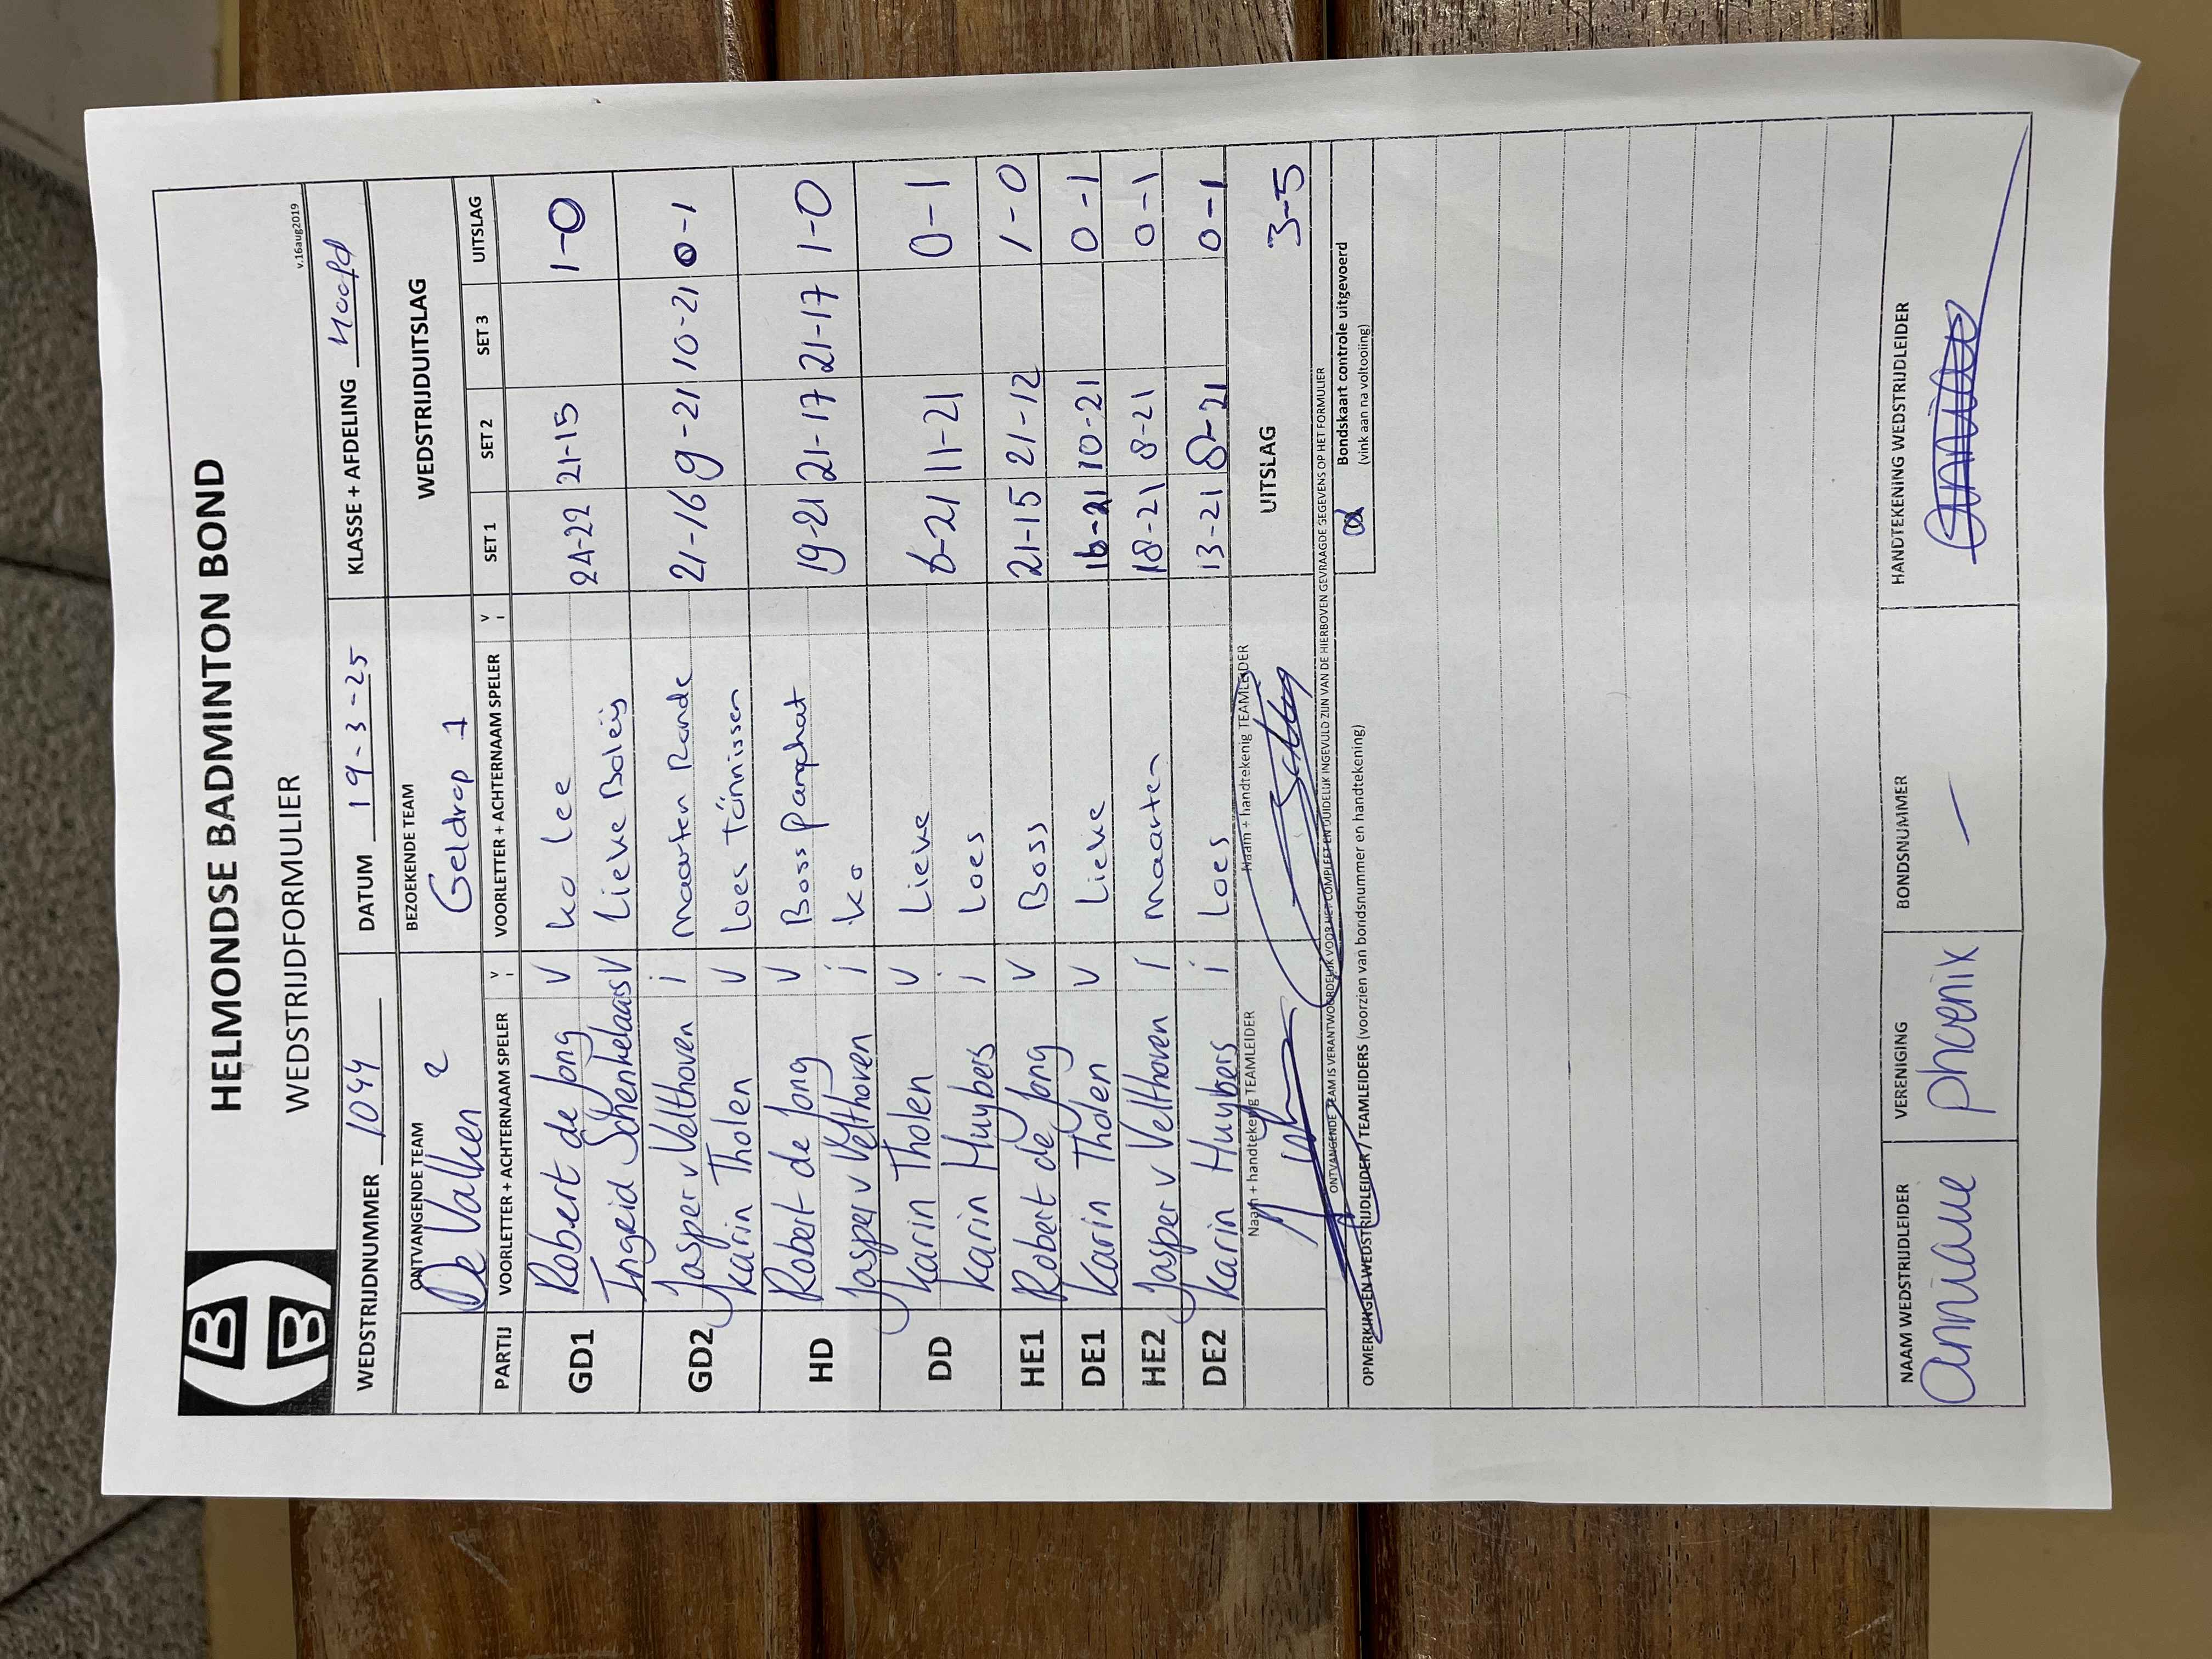 HELMONDSE BADMINTON BOND
WEDSTRIJDFORMULIER
v.16aug2019
WEDSTRIJDNUMMER 1044 DATUM 19-3-25 KLASSE + AFDELING Hoofd
ONTVANGENDE TEAM BEZOEKENDE TEAM WEDSTRIJDUITSLAG
De Valken 2 Geldrop 1
PARTIJ VOORLETTER + ACHTERNAAM SPELER V I VOORLETTER + ACHTERNAAM SPELER V I SET 1 SET 2 SET 3 UITSLAG
GD1 Robert de Jong V Ko Lee 24-22 21-15 1-0
Ingrid Schenkelaas V Lieke Boleij
GD2 Jasper v Velthoven i Maarten Rande 21-16 9-21 10-21 0-1
Karin Tholen V Loes Tönnissen
HD Robert de Jong V Boss Pamphat 19-21 21-17 21-17 1-0
Jasper v Velthoven i Ko
DD Karin Tholen V Lieke 6-21 11-21 0-1
Karin Huybers i Loes
HE1 Robert de Jong V Boss 21-15 21-12 1-0
DE1 Karin Tholen V Lieke 16-21 10-21 0-1
HE2 Jasper v Velthoven I Maarten 18-21 8-21 0-1
DE2 Karin Huybers i Loes 13-21 8-21 0-1
Naam + handtekenig TEAMLEIDER Naam + handtekenig TEAMLEIDER UITSLAG 3-5
ONTVANGENDE TEAM IS VERANTWOORDELIJK VOOR HET COMPLEET EN DUIDELIJK INGEVULD ZIJN VAN DE HIERBOVEN GEVRAAGDE GEGEVENS OP HET FORMULIER
OPMERKINGEN WEDSTRIJDLEIDER / TEAMLEIDERS (voorzien van bondsnummer en handtekening)
Bondskaart controle uitgevoerd
(vink aan na voltooiing)
NAAM WEDSTRIJDLEIDER VERENIGING BONDSNUMMER HANDTEKENING WEDSTRIJDLEIDER
Anniane phoenix –